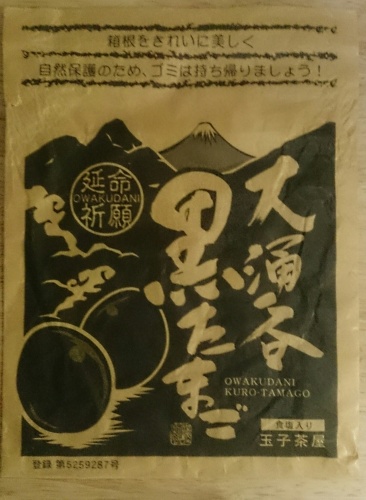 箱根をきれいに美しく
自然保護のため、ゴミは持ち帰りましょう！
延命
OWAKUDANI
祈願
大涌谷
黒たまご
OWAKUDANI
KURO-TAMAGO
食塩入り
玉子茶屋
登録 第5259287号